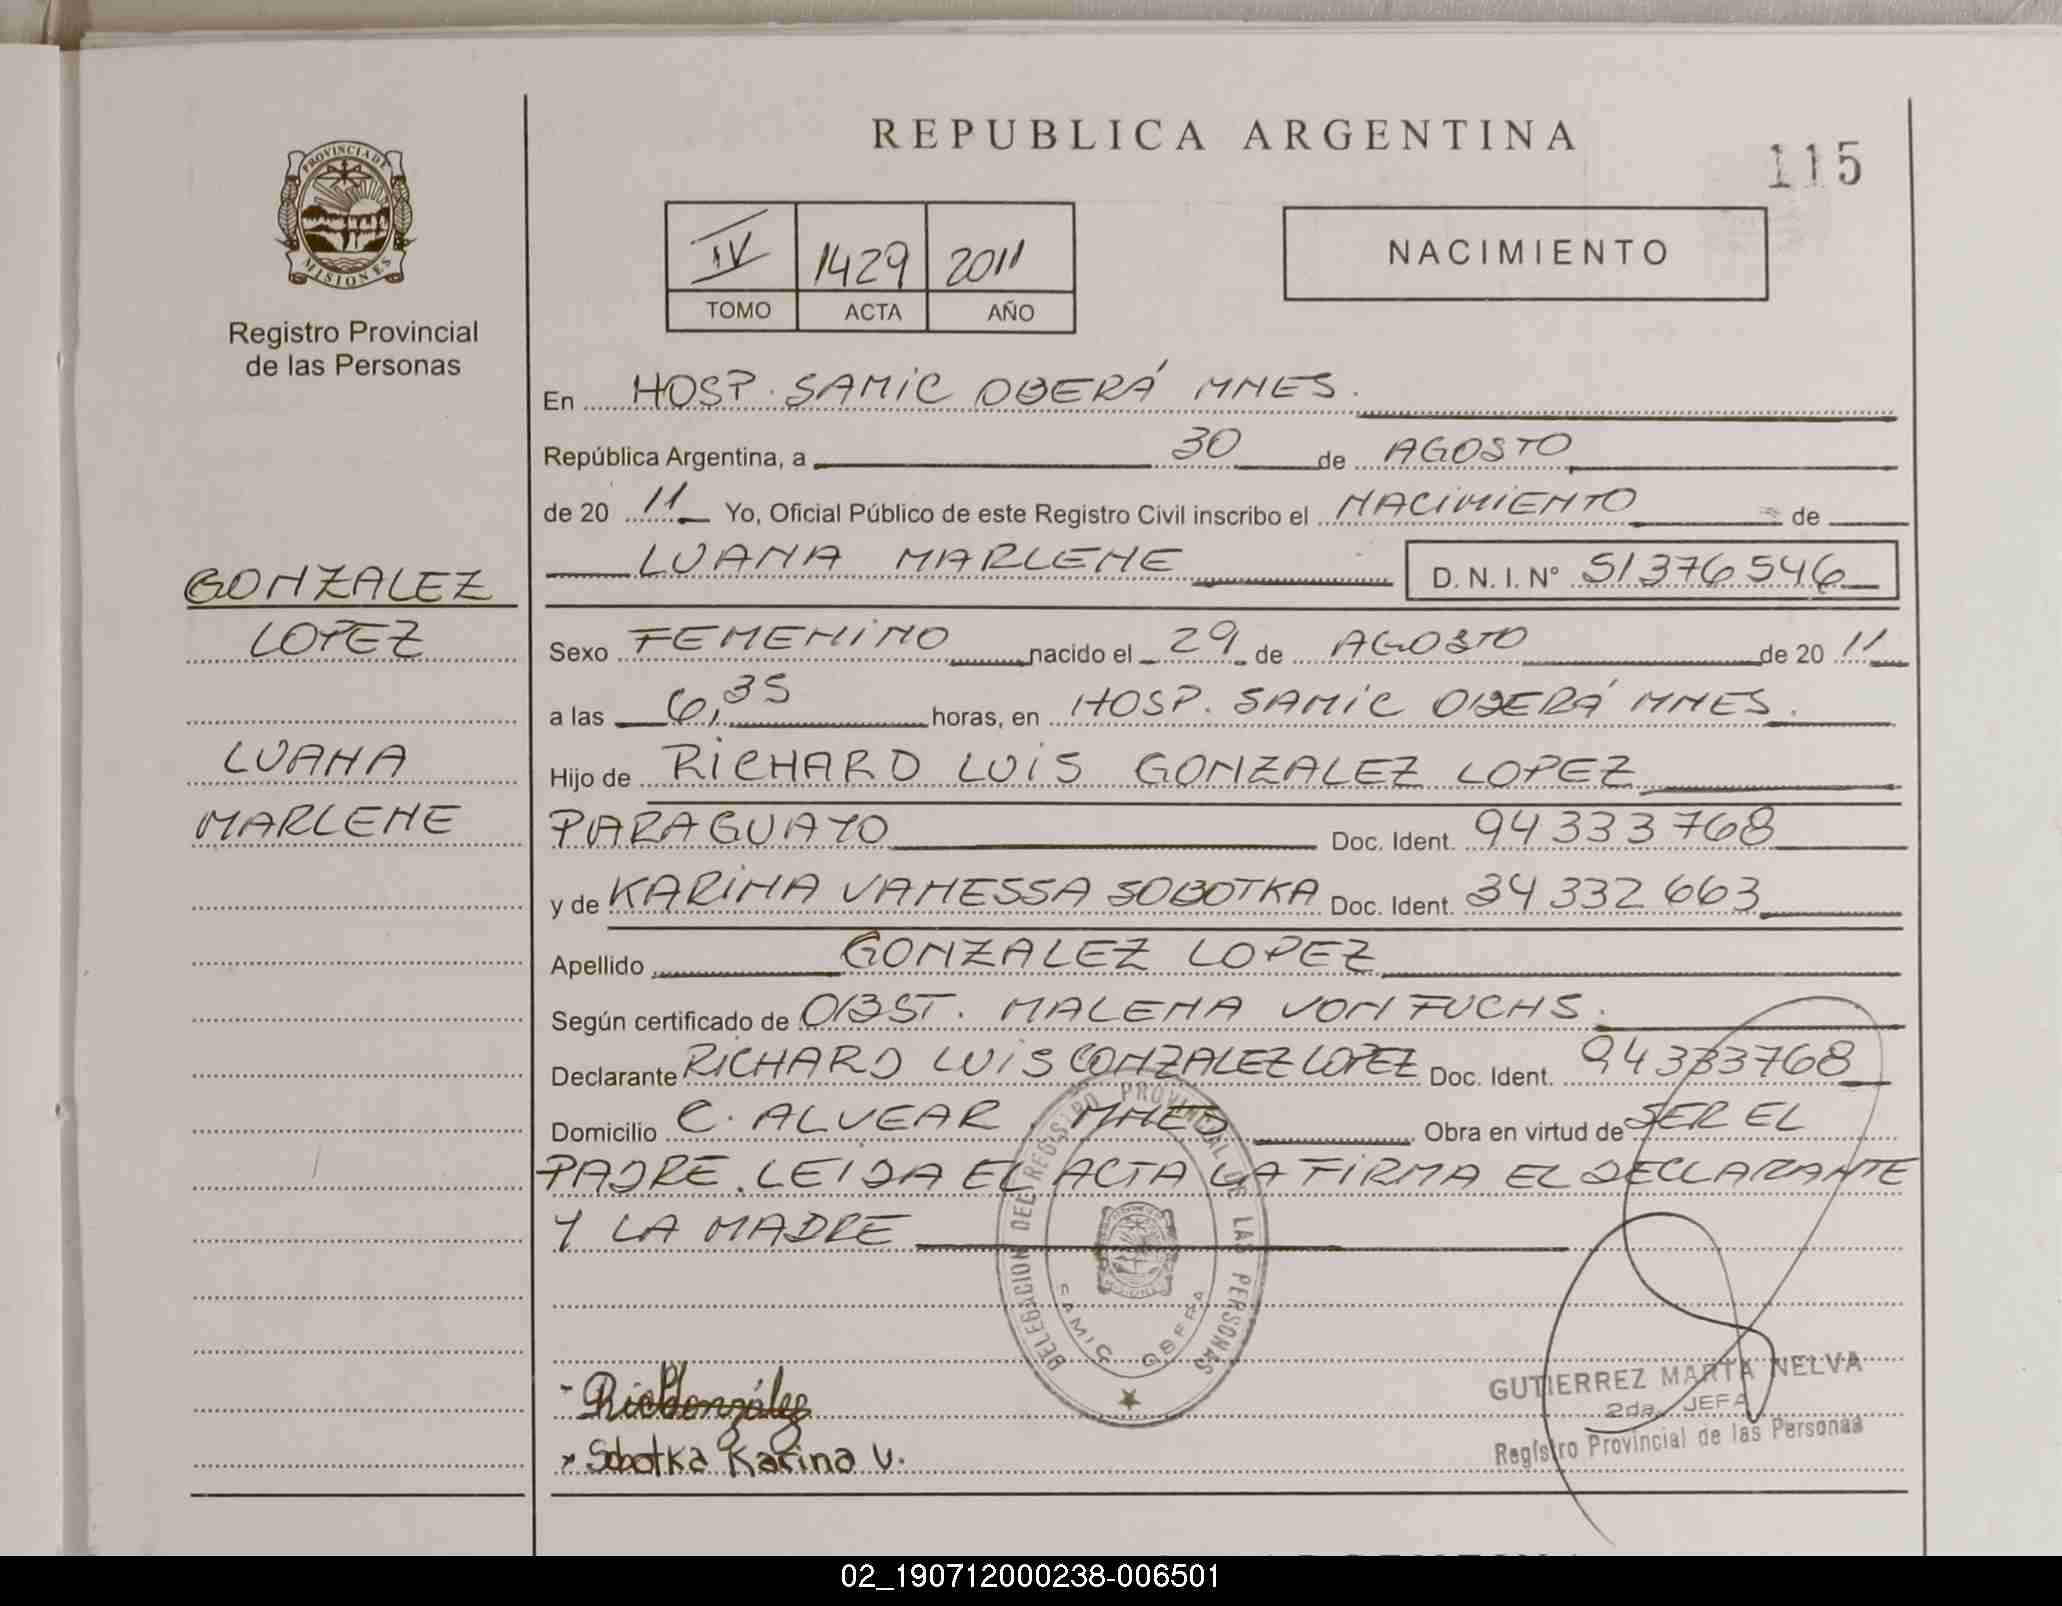 REPUBLICA ARGENTINA
115
PROVINCIA DE MISIONES
Registro Provincial
de las Personas
IV 1429 2011
TOMO ACTA AÑO
NACIMIENTO
En HOSP. SAMIC OBERÁ MNES.
República Argentina, a 30 de AGOSTO
de 20 11 Yo, Oficial Público de este Registro Civil inscribo el NACIMIENTO de
LUANA MARLENE D. N. I. N° 51376546
GONZALEZ
LOPEZ
LUANA
MARLENE
Sexo FEMENINO nacido el 29 de AGOSTO de 20 11
a las 6,35 horas, en HOSP. SAMIC OBERÁ MNES.
Hijo de RICHARD LUIS GONZALEZ LOPEZ
PARAGUAYO Doc. Ident. 94333768
y de KARINA VANESSA SOBOTKA Doc. Ident. 34332663
Apellido GONZALEZ LOPEZ
Según certificado de OBST. MALENA VON FUCHS.
Declarante RICHARD LUIS GONZALEZ LOPEZ Doc. Ident. 94333768
Domicilio C. ALVEAR MNES Obra en virtud de SER EL
PADRE. LEIDA EL ACTA LA FIRMA EL DECLARANTE
Y LA MADRE
DELEGACION DEL REGISTRO PROVINCIAL DE LAS PERSONAS
SAMIC OBERA
Sobotka Karina V.
GUTIERREZ MARTA NELVA
2da. JEFA
Registro Provincial de las Personas
02_190712000238-006501